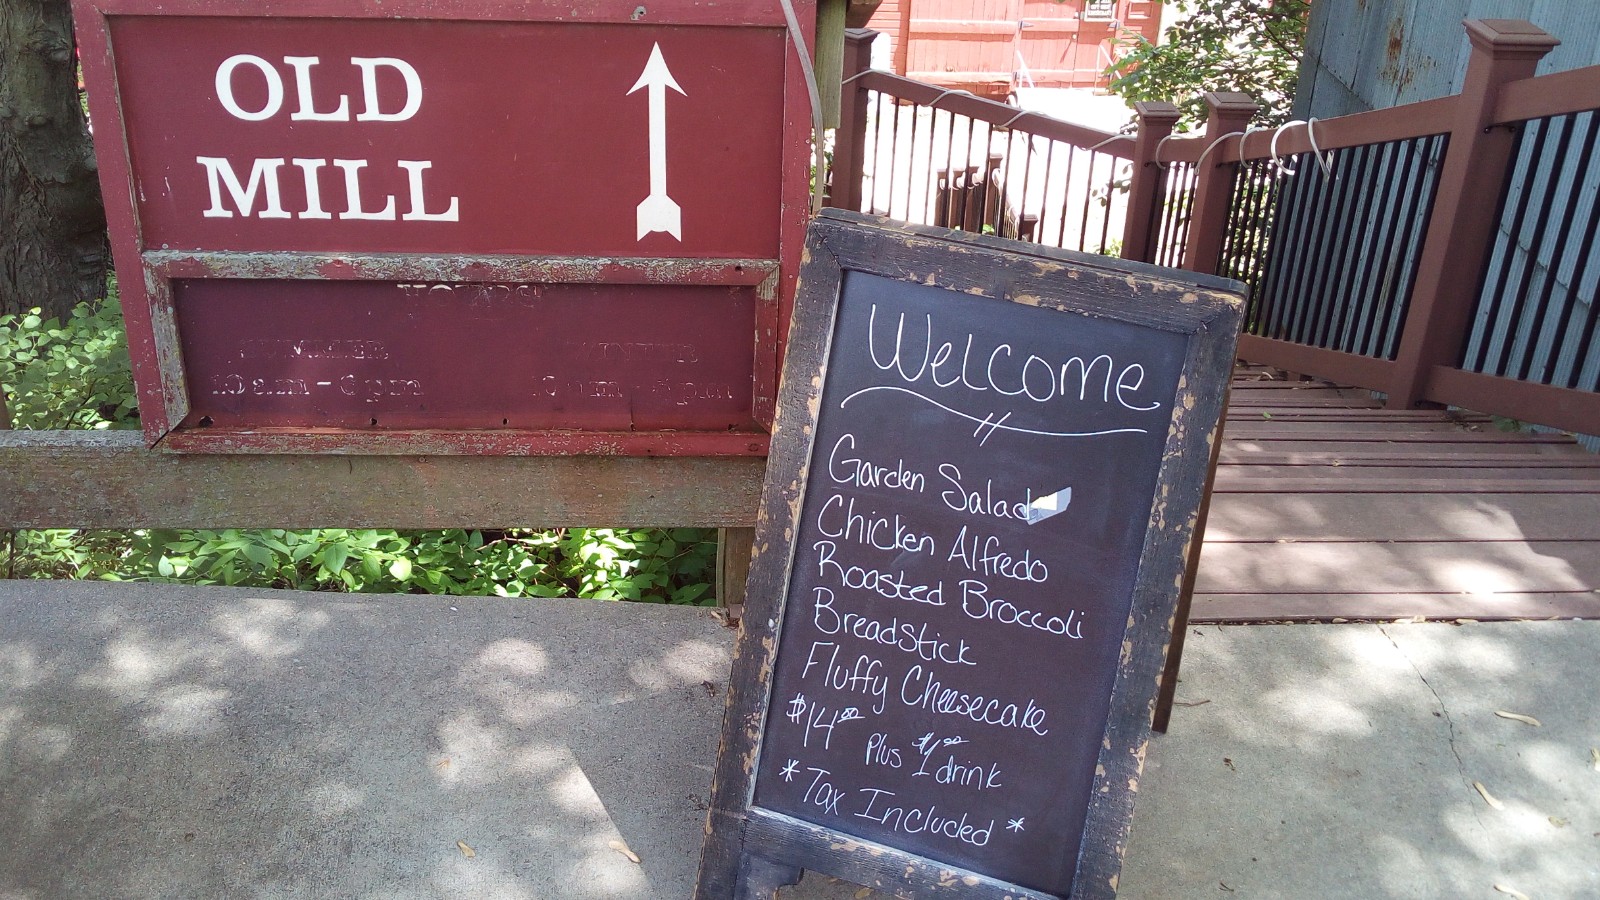 OLD
MILL
HOURS
SUMMER
10am-6pm
Welcome
Garden Salad
Chicken Alfredo
Roasted Broccoli
Breadstick
Fluffy Cheesecake
$14.00 Plus $1.00 drink
*Tax Included*